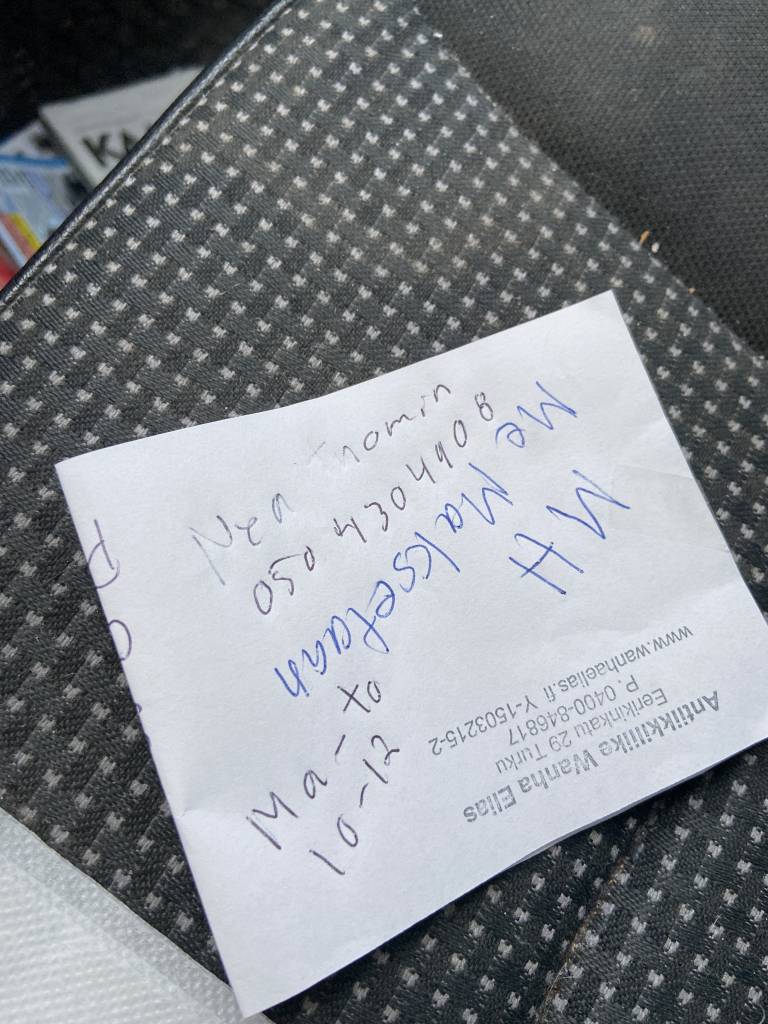 KA
Nea
050 4304908
Ma - to
10-12
MH
Me Maksetaan
Antiikkiliike Wanha Elias
Eerikinkatu 29 Turku
P. 0400-846817
www.wanhaelias.fi Y-1503215-2